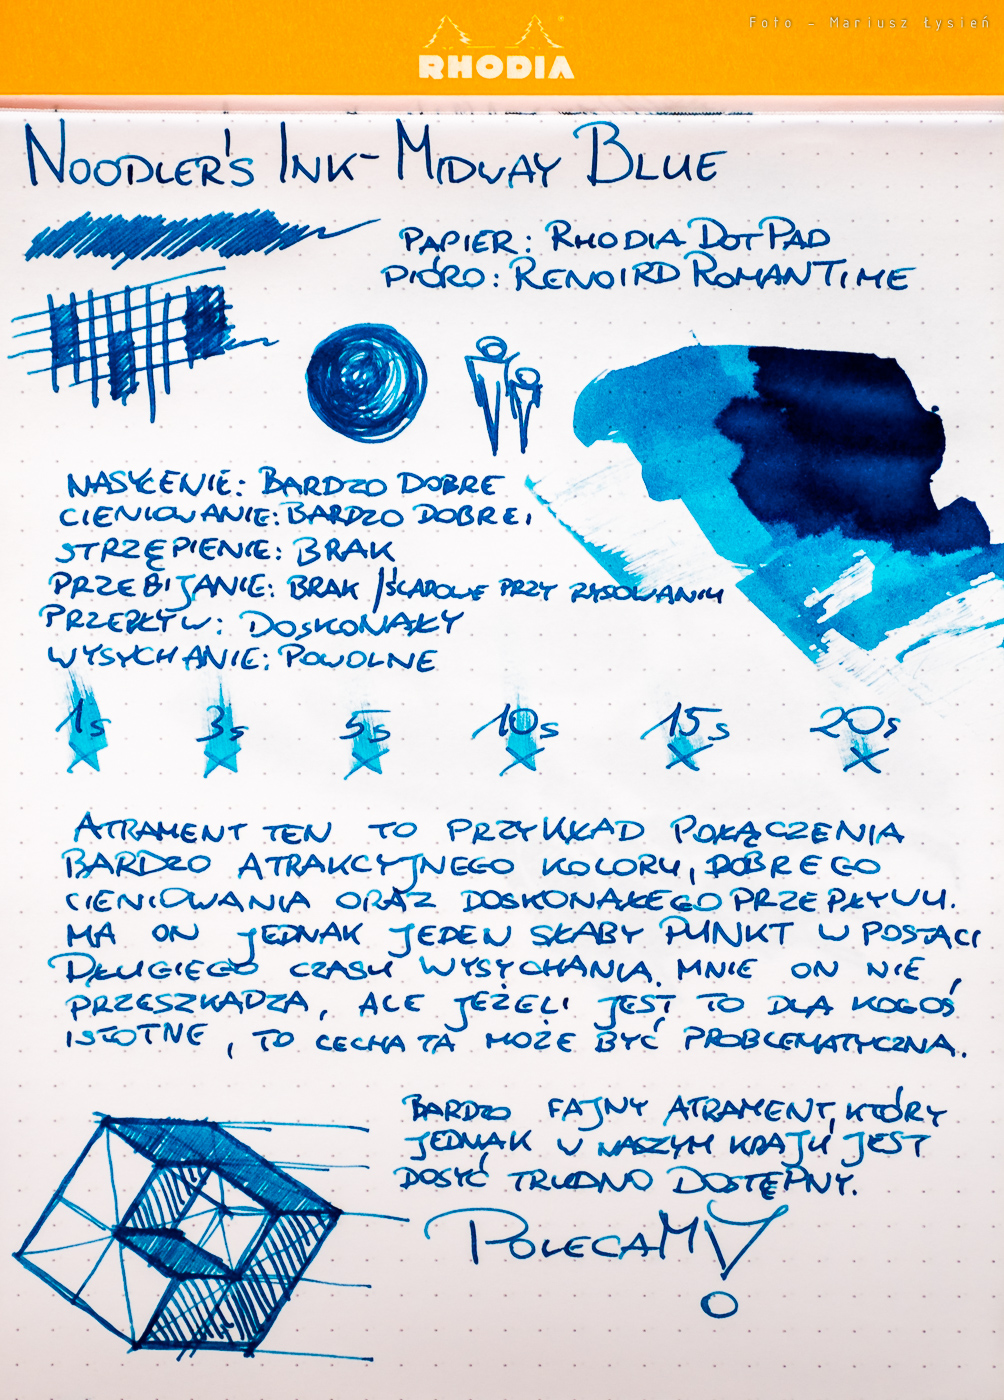 Foto - Mariusz Łysień
RHODIA
NOODLER'S INK - MIDWAY BLUE
PAPIER: RHODIA DOTPAD
PIÓRO: RENOIRD ROMANTIME
NASYCENIE: BARDZO DOBRE
CIENIOWANIE: BARDZO DOBRE
STRZĘPIENIE: BRAK
PRZEBIJANIE: BRAK / ŚLADOWE PRZY RYSOWANIU
PRZEPŁYW: DOSKONAŁY
WYSYCHANIE: POWOLNE
1s 3s 5s 10s 15s 20s
ATRAMENT TEN TO PRZYKŁAD POŁĄCZENIA
BARDZO ATRAKCYJNEGO KOLORU, DOBREGO
CIENIOWANIA ORAZ DOSKONAŁEGO PRZEPŁYWU.
MA ON JEDNAK JEDEN SŁABY PUNKT W POSTACI
DŁUGIEGO CZASU WYSYCHANIA. MNIE ON NIE
PRZESZKADZA, ALE JEŻELI JEST TO DLA KOGOŚ
ISTOTNE, TO CECHA TA MOŻE BYĆ PROBLEMATYCZNA.
BARDZO FAJNY ATRAMENT, KTÓRY
JEDNAK W NASZYM KRAJU JEST
DOSYĆ TRUDNO DOSTĘPNY.
POLECAM!